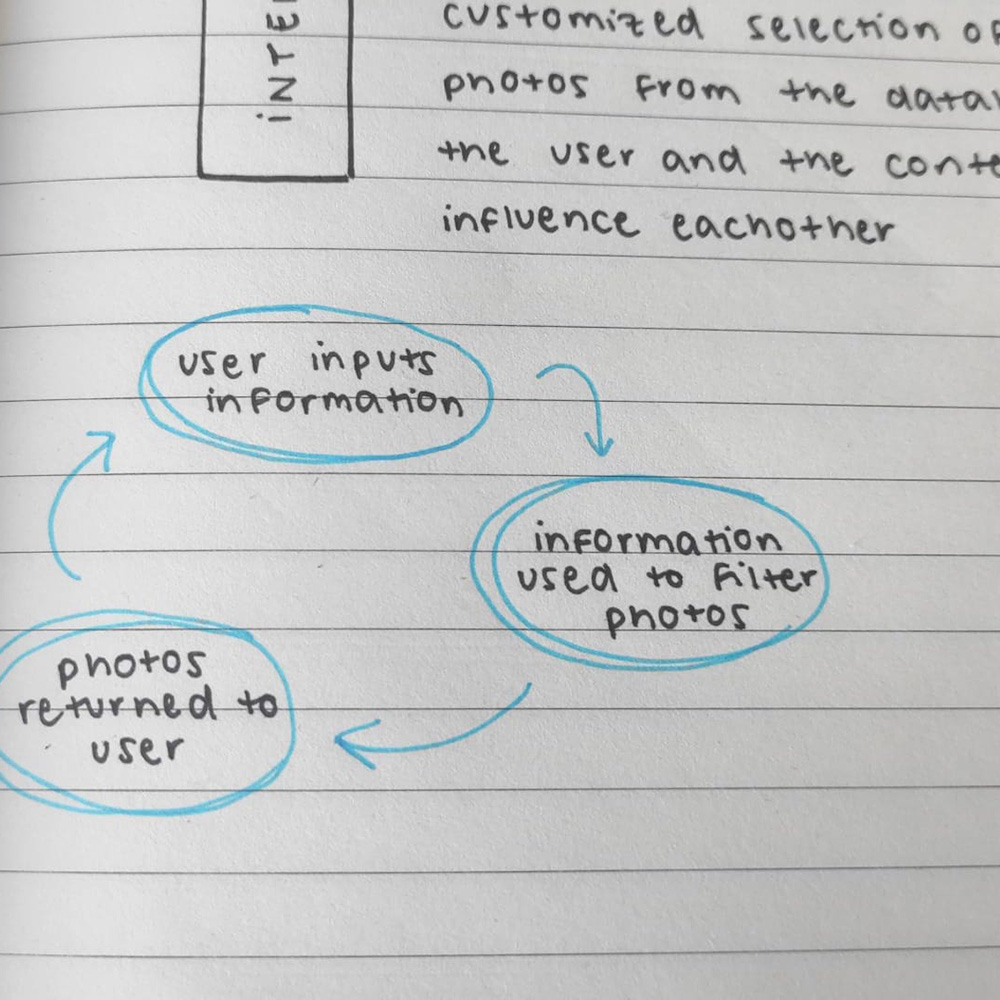 customized selection
photos from the
the user and the
influence eachother
user inputs
information
information
used to filter
photos
photos
returned to
user